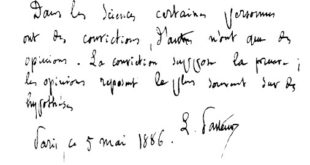 Dans les sciences certaines personnes
ont des convictions, d'autres n'ont que des
opinions. La conviction suppose la preuve ;
les opinions reposent le plus souvent sur des
hypothèses
Paris ce 5 mai 1886. L. Pasteur